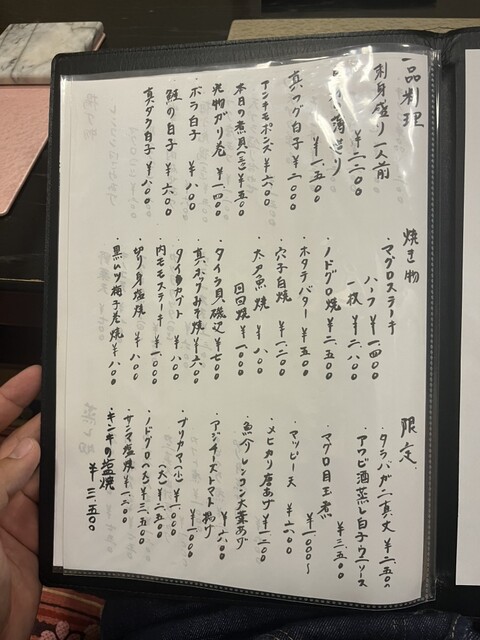 一品料理
刺身盛り一人前
¥二、二〇〇
薄造り
¥一、五〇〇
真フグ白子 ¥二、〇〇〇
アンキモポンズ ¥六〇〇
本日の煮貝(三) ¥五〇〇
光物ガリ巻 ¥一、四〇〇
ボラ白子 ¥八〇〇
鮭の白子 ¥六〇〇
真ダラ白子 ¥八〇〇
焼き物
・マグロステーキ
ハーフ ¥一、四〇〇
一枚 ¥二、八〇〇
・ノドグロ焼 ¥二、五〇〇
・ホタテバター ¥五〇〇
・穴子白焼 ¥一、二〇〇
・太刀魚焼 ¥八〇〇
回回焼 ¥一、〇〇〇
・タイラ貝磯辺 ¥七〇〇
・真ホッケみそ焼 ¥六〇〇
・タイカブト ¥八〇〇
・内モモステーキ ¥一、〇〇〇
・切り身塩焼 ¥八〇〇
・黒ムツ梅子巻焼 ¥八〇〇
限定
・タラバガニ真丈 ¥二、五〇〇
・アワビ酒蒸し白子ウニソース
¥三、五〇〇
・マグロ目玉煮
¥一、〇〇〇〜
・マッピー天 ¥六〇〇
・メヒカリ唐あげ ¥一、二〇〇
・魚介レンコン大葉あげ
¥八〇〇
・アンチーズトマト揚げ
¥一、〇〇〇
・ブリカマ(小) ¥一、〇〇〇
(大) ¥二、〇〇〇
・ノドグロ(大) ¥三、五〇〇
・サンマ塩焼 ¥一、二〇〇
・キンキの塩焼
¥三、五〇〇